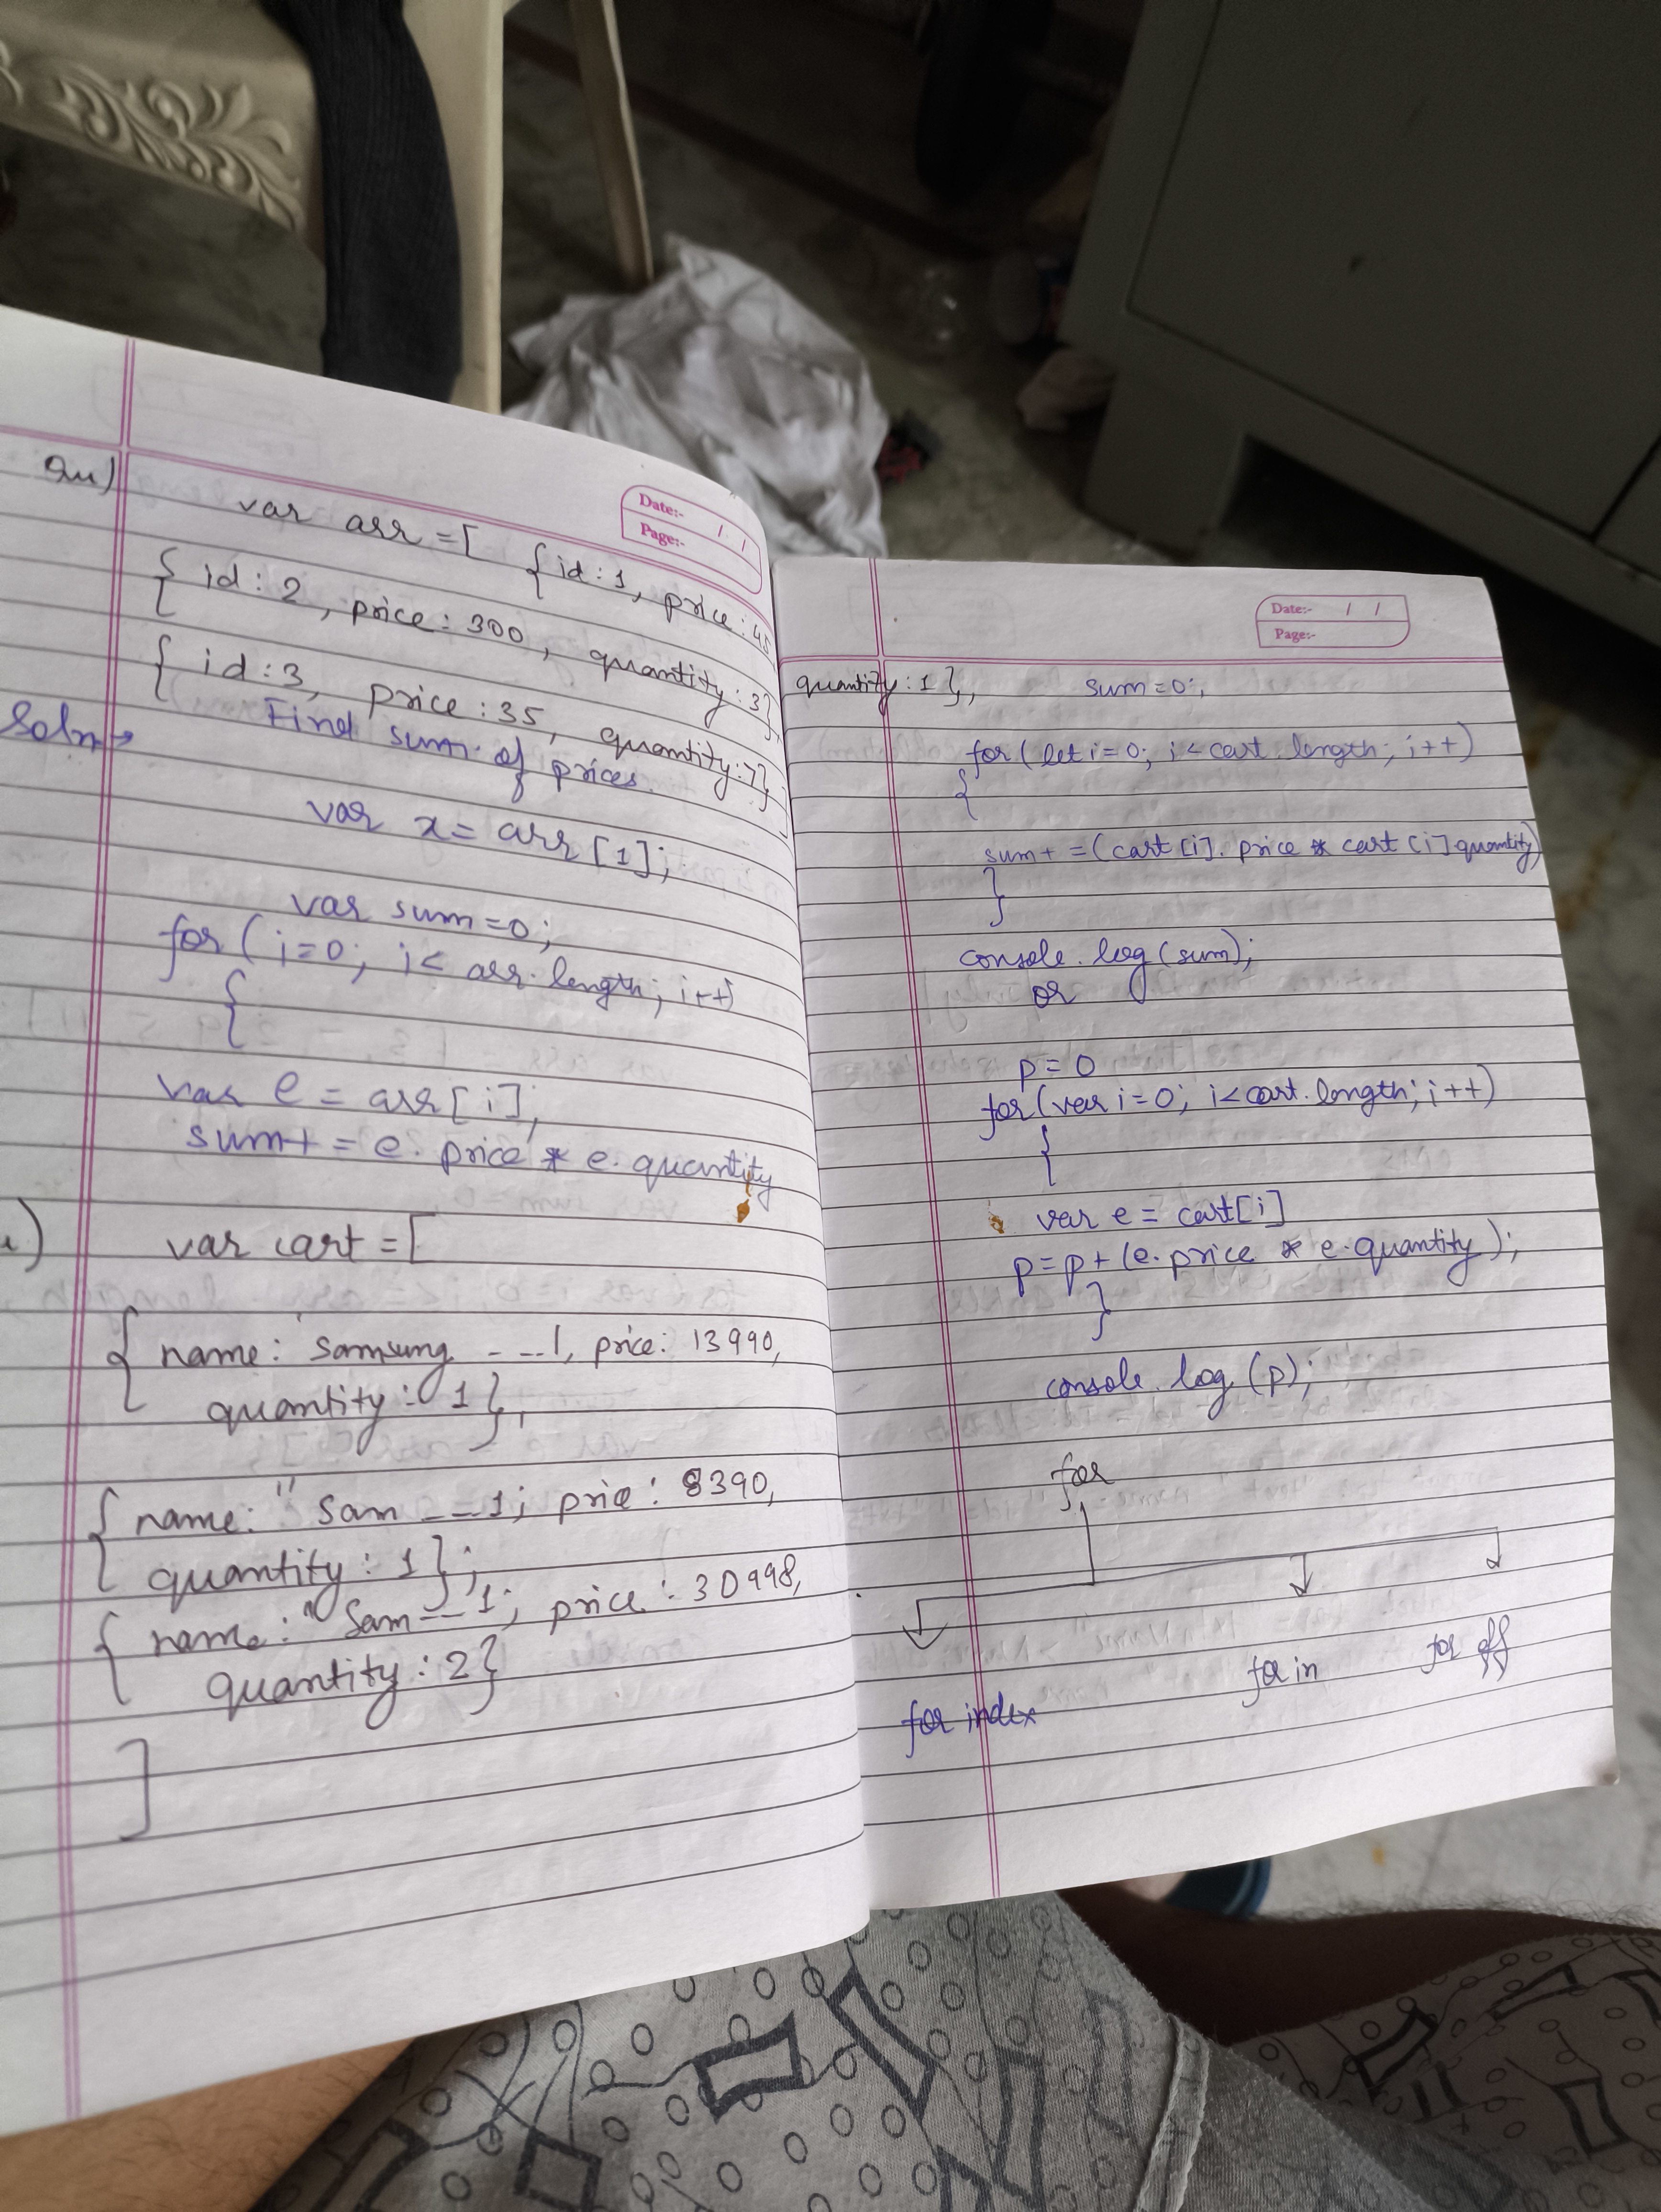 Qu)
Date:- / /
Page:-
var arr = [ {id:1, price:45
{ id:2, price:300, quantity:3},
{ id:3, price:35, quantity:7}
]
Find sum of prices.
Soln→
var x = arr[1];
var sum=0;
for ( i=0; i< arr.length; i++)
{
var e = arr[i];
sum+ = e.price * e.quantity
)
var cart = [
{ name: Samsung - -- 1, price: 13990,
quantity: 1},
{ name: " Sam - --1; price: 8390,
quantity: 1};
{ name: " Sam -- 1; price: 30998,
quantity: 2}
]
Date:- / /
Page:-
quantity:1 },, sum=0;,
for ( let i=0; i< cart.length; i++)
{
sum+ =(cart [i]. price * cart [i] quantity)
}
console.log(sum);
or
p = 0
for (var i=0; i<cart.length; i++)
{
var e = cart[i]
p = p+ (e.price * e.quantity);
}
console.log (p);
for
for index for in for off